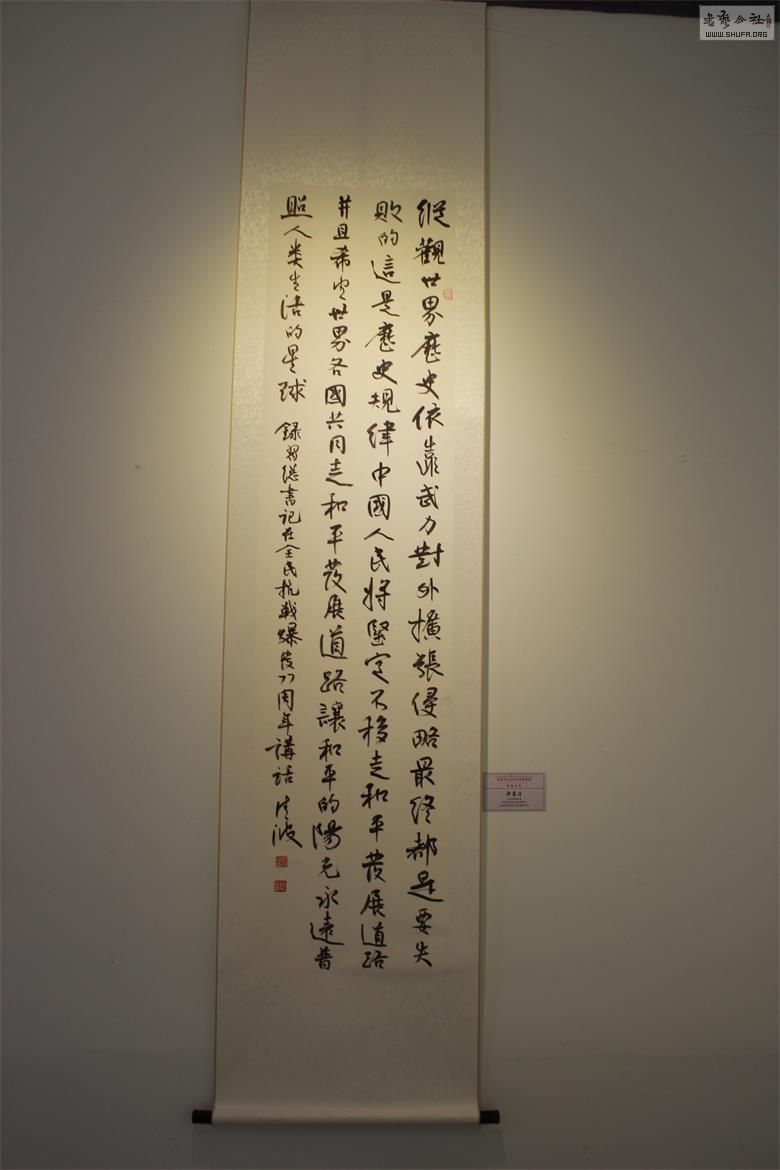 縱觀世界歷史依靠武力對外擴張侵略最終都是要失
敗的這是歷史規律中國人民將堅定不移走和平發展道路
并且希望世界各國共同走和平發展道路讓和平的陽光永遠普
照人类生活的星球
録習總書記在全民抗戰爆發77周年講話
WWW.SHUFA.ORG